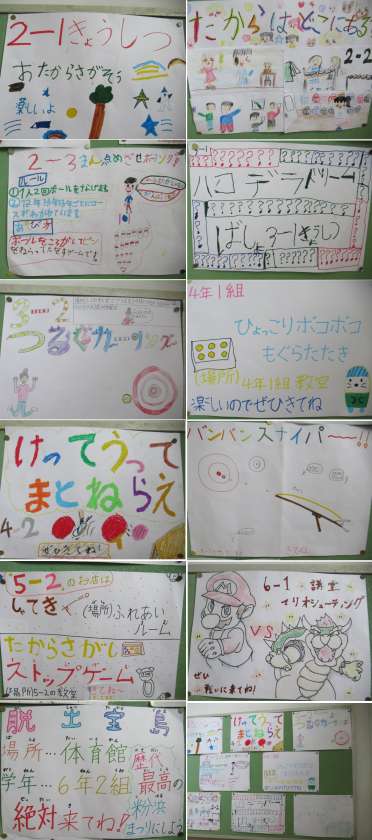 2-1きょうしつ
おたからさがそう
楽しいよ
だからはどこにある
2-2
2-3まん点めざせボーリング
ルール
①1人2回ボールをなげます
あそび方
ボールをころがしてピン
をねらってたおすゲームです
ハコデラドリーム
ばしょ3-1きょうしつ
3-2
つるぞルーリングズ
4年1組
ひょっこりボコボコ
もぐらたたき
(場所)
4年1組教室
楽しいのでぜひきてね
けってうって
まとねらえ
4-2
ぜひきてね!
バンバンスナイパー!!
5-2のお店は
しゃてき
(場所)ふれあい
ルーム
たからさがし
ストップゲーム
場所5-2の教室
6-1 講堂
マリオシューティング
VS
ぜひ
戦いに来てね!
脱出宝島
場所…体育館
学年…6年2組
絶対来てね!!
歴代
最高の
粉浜
まつりにしよう
けってうって
まとねらえ